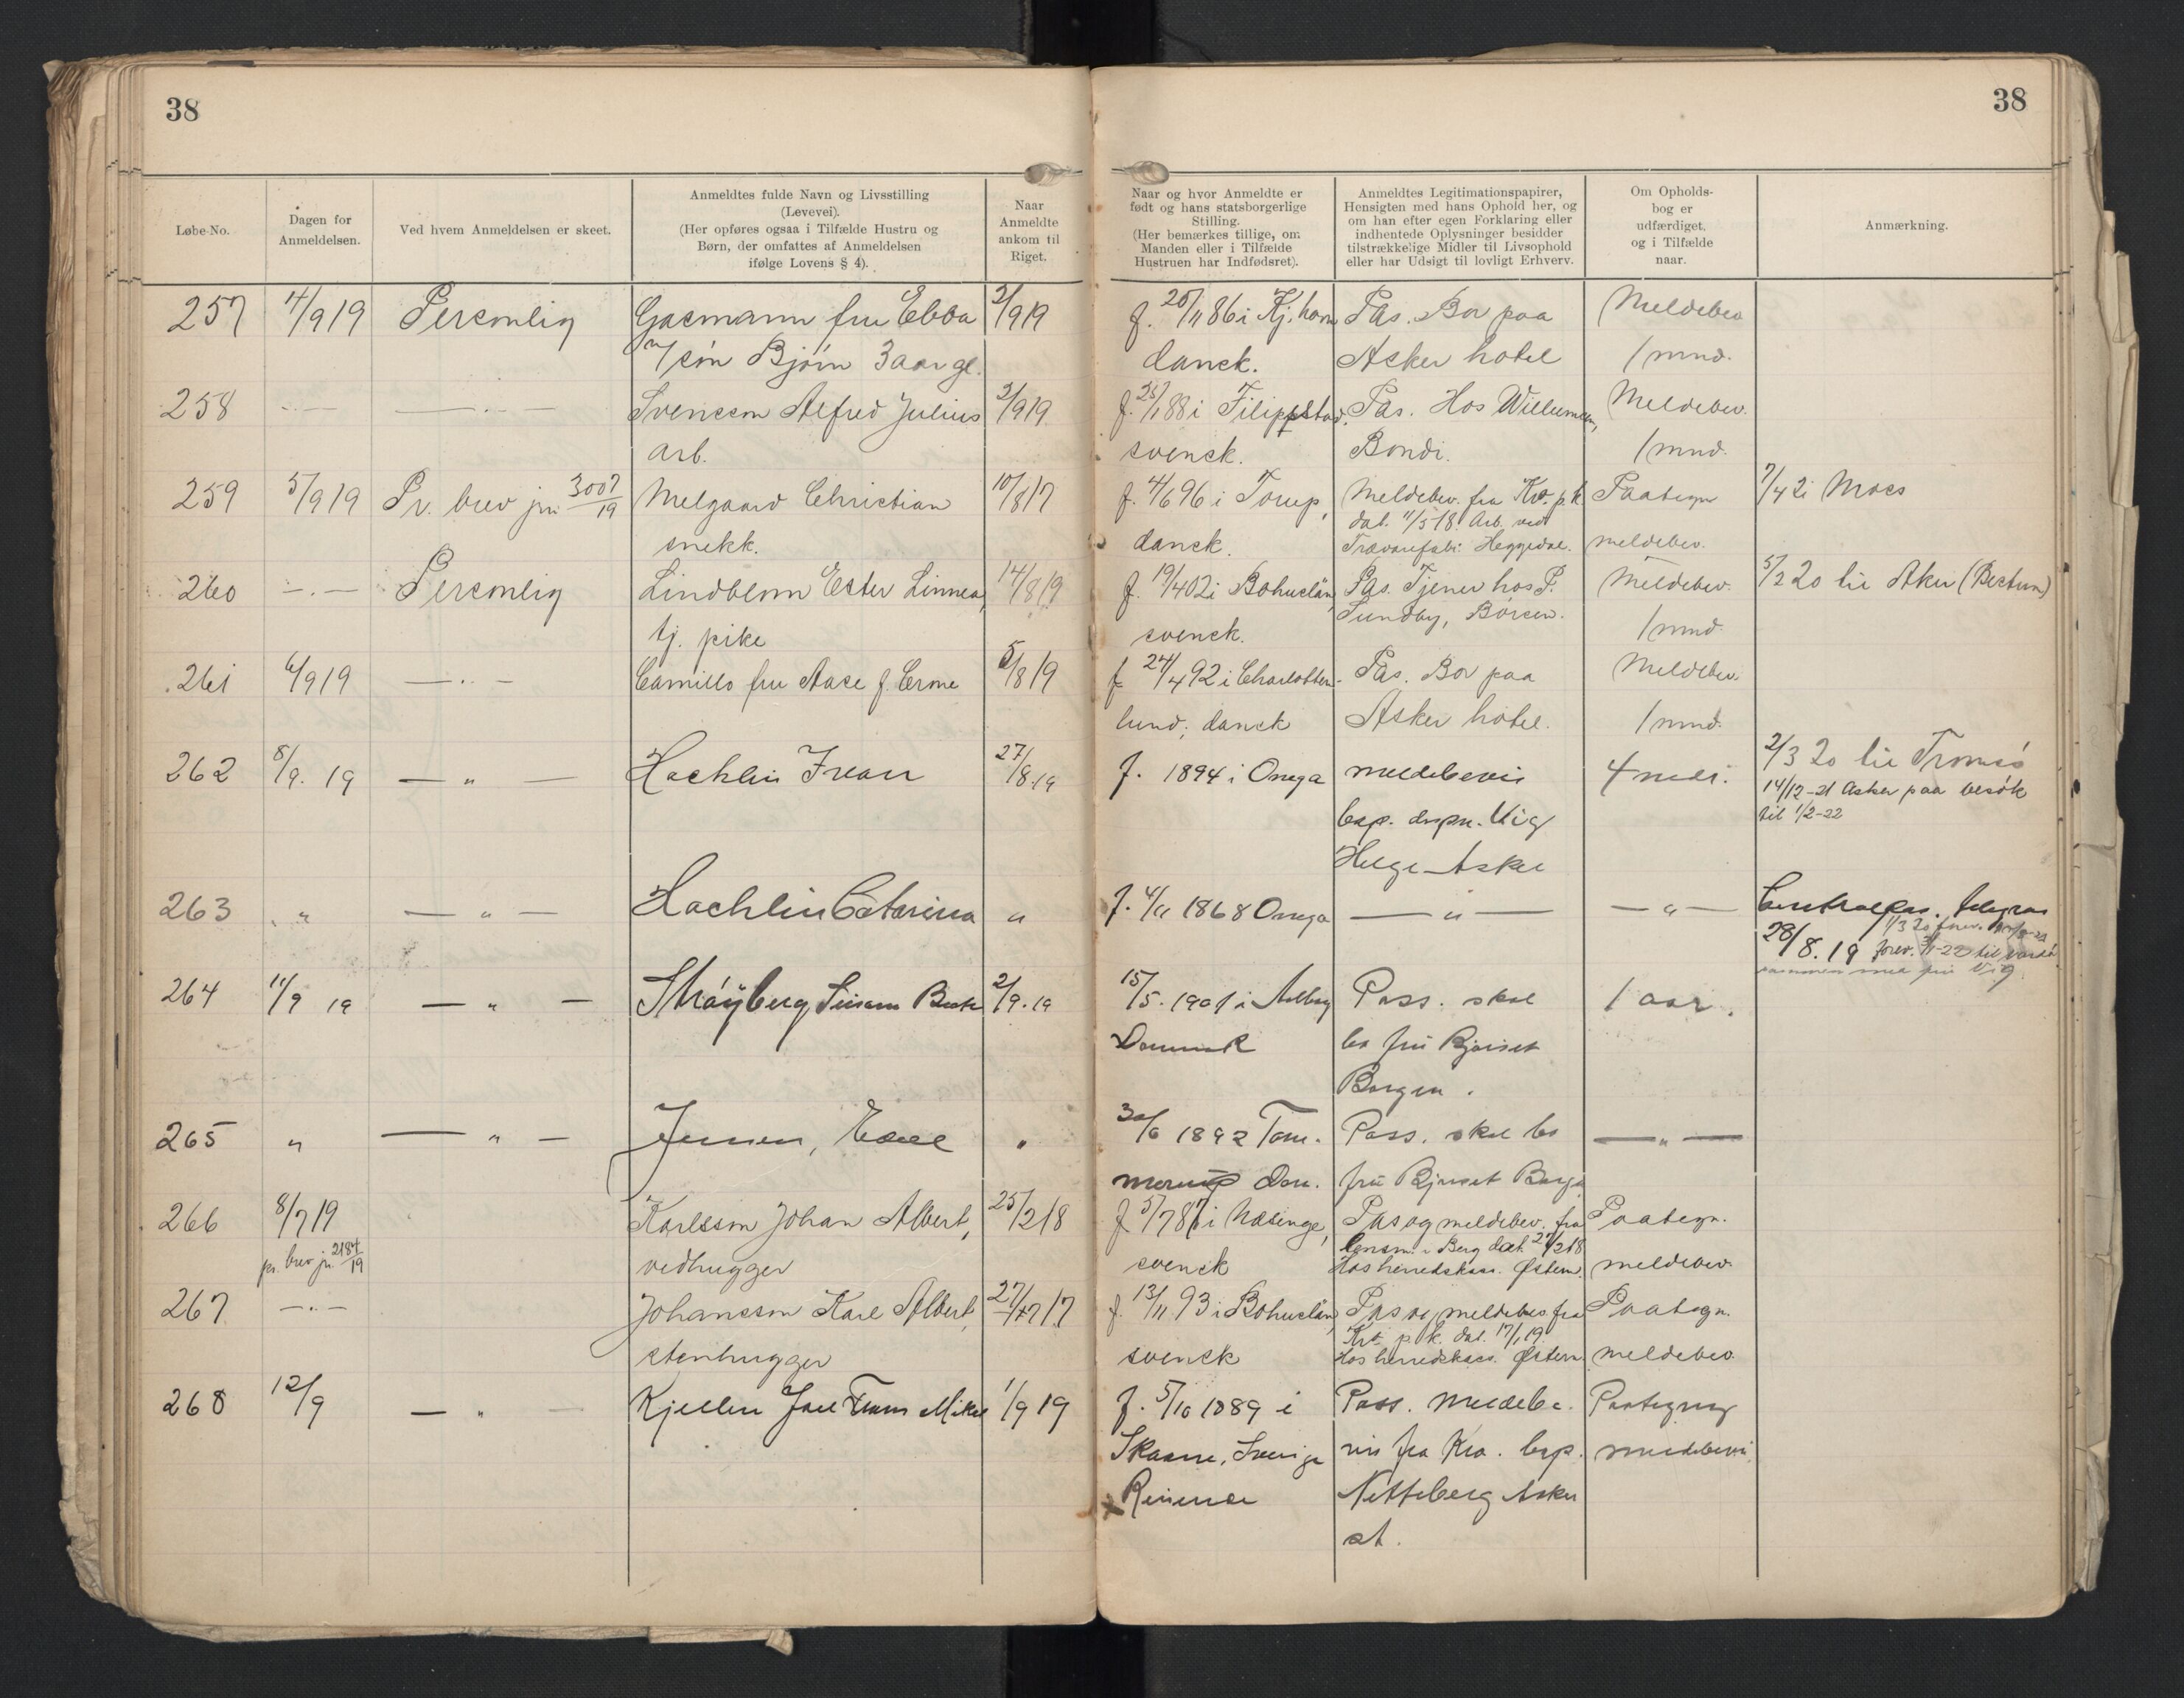 38
38
Løbe-No.
Dagen for
Anmeldelsen.
Ved hvem Anmeldelsen er skeet.
Anmeldtes fulde Navn og Livsstilling
(Levevei).
(Her opføres ogsaa i Tilfælde Hustru og
Børn, der omfattes af Anmeldelsen
ifølge Lovens § 4).
Naar
Anmeldte
ankom til
Riget.
Naar og hvor Anmeldte er
født og hans statsborgerlige
Stilling.
(Her bemærkes tillige, om
Manden eller i Tilfælde
Hustruen har Indfødsret).
Anmeldtes Legitimationspapirer,
Hensigten med hans Ophold her, og
om han efter egen Forklaring eller
indhentede Oplysninger besidder
tilstrækkelige Midler til Livsophold
eller har Udsigt til lovligt Erhverv.
Om Opholds-
bog er
udfærdiget,
og i Tilfælde
naar.
Anmærkning.
257 4/9 19 Personlig Gasmann fru Ebba 2/9 19 f. 20/11 86 i Kj.havn Pas. Bor paa Meldebev.
m/søn Bjørn 3 aar gl. dansk. Asker hotel 1 mnd.
258 Svensson Alfred Julius 2/9 19 f. /1 88 i Filippstad. Pas. Hos Willumsen, Meldebev.
arb. svensk. Bondi. 1 mnd.
259 5/9 19 Pr. brev jnr. 3007/19 Melgaard Christian 10/8 17 f. 4/6 96 i Torup, Meldebev. fra Kr. p.k. Paategn. 7/4 21 Moss
snekk. dansk. dat. 11/5 18. Arb. ved
Trævarefabr. Heggedal. meldebev.
260 Personlig Lindblom Ester Linnea, 14/8 19 f. 19/4 02 i Bohuslän, Pas. Tjener hos P. Meldebev. 5/2 20 til Aker (Bestum)
tj. pike svensk. Sundby, Börsen. 1 mnd.
261 6/9 19 Camillo fru Aase f. Crone 5/8 19 f. 24/4 92 i Charlotten- Pas. Bor paa Meldebev.
lund; dansk Asker hotel. 1 mnd.
262 8/9. 19 — " — Hachlin Ivan 27/8.19 f. 1894 i Onega meldebevis 4 mdr. 2/3 20 til Tromsö
14/12-21 Asker paa besök
til 1/2-22
Helge Asker
263 " — " — Hachlin Catarina " f. 4/11 1868 Onega — " — — " — Centralpas.
28/8.19
264 11/9 19 — " — Strøyberg 2/9.19 15/5. 1901 i Aalborg Pass. skal 1 aar.
Danmark bo fru Bjørset
Borgen.
265 " — " — Jensen, 30/6 1892 Tom- Pass. skal bo — " —
merup Dan. fru Bjørset
266 8/7 19 Karlsson Johan Albert, 25/2 18 f. 5/7 87 i Näsinge, Pas og meldebev. fra Paategn.
pr. brev jn. 2184/19 vedhugger svensk lensm. i Berg dat. 27/2 18
Hos herredskass. Østern. meldebev.
267 Johansson Karl Albert, 27/7 17 f. 13/11.93 i Bohuslän, Pas og meldebev fra Paategn.
stenhugger svensk Kr. p.k. dat. 17/1 19.
Hos herredskass. Østern. meldebev.
268 12/9 — " — Kjellin Frans Mikal 1/9 19 f. 5/10 1889 i Pass. meldebe- Paategning
Skaane, Sverige vis fra Kra. meldebevis
Asker
st.